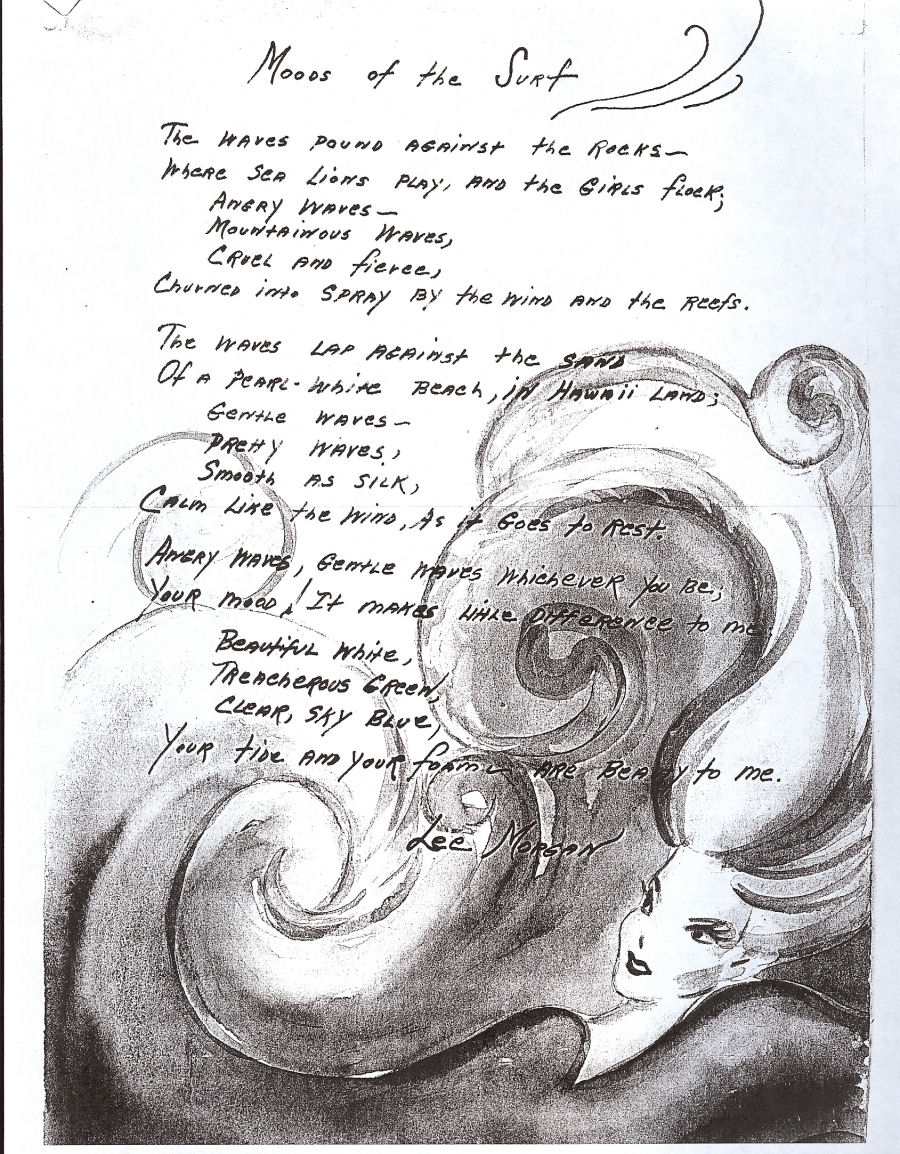 Moods of the Surf
The waves pound against the Rocks—
Where Sea Lions play, and the Girls flock;
Angry Waves—
Mountainous Waves,
Cruel and fierce,
Churned into Spray By the wind and the Reefs.
The waves lap against the sand
Of a Pearl-White Beach, in Hawaii Land;
Gentle waves—
Pretty waves,
Smooth as silk,
Calm like the wind, as it Goes to rest.
Angry waves, Gentle waves whichever you be,
Your mood! It makes little Difference to me
Beautiful White,
Treacherous Green,
Clear, sky Blue,
Your tide and your foam are Beauty to me.
Lee Morgan